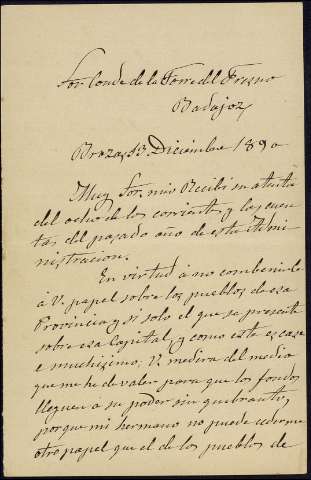 Sor Conde de la Torre del Fresno
Badajoz
Brozas 13 Diciembre 1890
Muy Sor. mio Recibi su atenta
del ocho de los corrientes y las cuen
tas del pasado año de esta Admi
nistracion.
En virtud á no combenirle
á V. papel sobre los pueblos de esa
Provincia y si solo el que se presente
sobre esa Capital, y como este escase
e muchisimo, V. medira del medio
que me he de valer para que los fondos
lleguen á su poder sin quebranto,
porque mi hermano no puede cederme
otro papel que el de los pueblos de